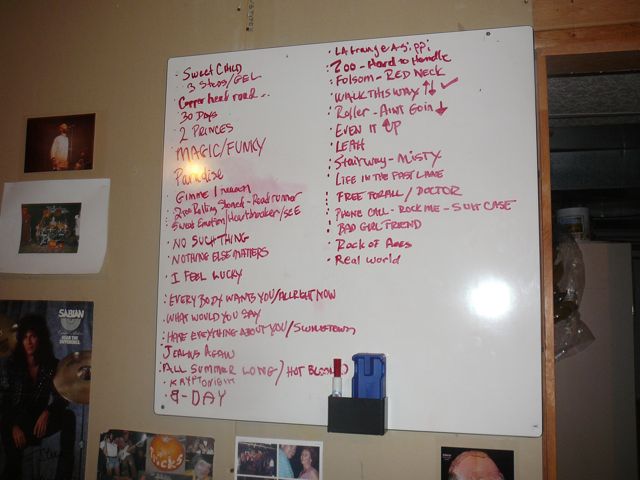 - Sweet Child
3 Steps/GEL
Copper head road..
30 Days
2 Princes
MAGIC/FUNKY
Paradise
Gimme
Rolling Stoned - Road runner
Sweat Emotion/Heartbreaker/SEE
- NO SUCH THING
- NOTHING ELSE MATTERS
- I FEEL LUCKY
- EVERY BODY WANTS YOU/ALLRIGHT NOW
- WHAT WOULD YOU SAY
- HATE EVEYTHING ABOUT YOU/
Jealous Again
ALL SUMMER LONG/HOT
- KRYPTONIGHT
B-DAY
- LA Grange-A-Sippi
: 200 - Hard to Handle
: Folsom - RED NECK
: WALK THIS WAY
: Roller - AINT Goin
: EVEN IT UP
: LEAH
: Stairway - MISTY
: LIFE IN THE FAST LANE
: FREE FOR ALL / DOCTOR
: PHONE CALL - ROCK ME - SUIT CASE
: BAD GIRLFRIEND
: Rock of Ages
: Real world
SABIAN
HEAR THE
DIFFERENCE
icks